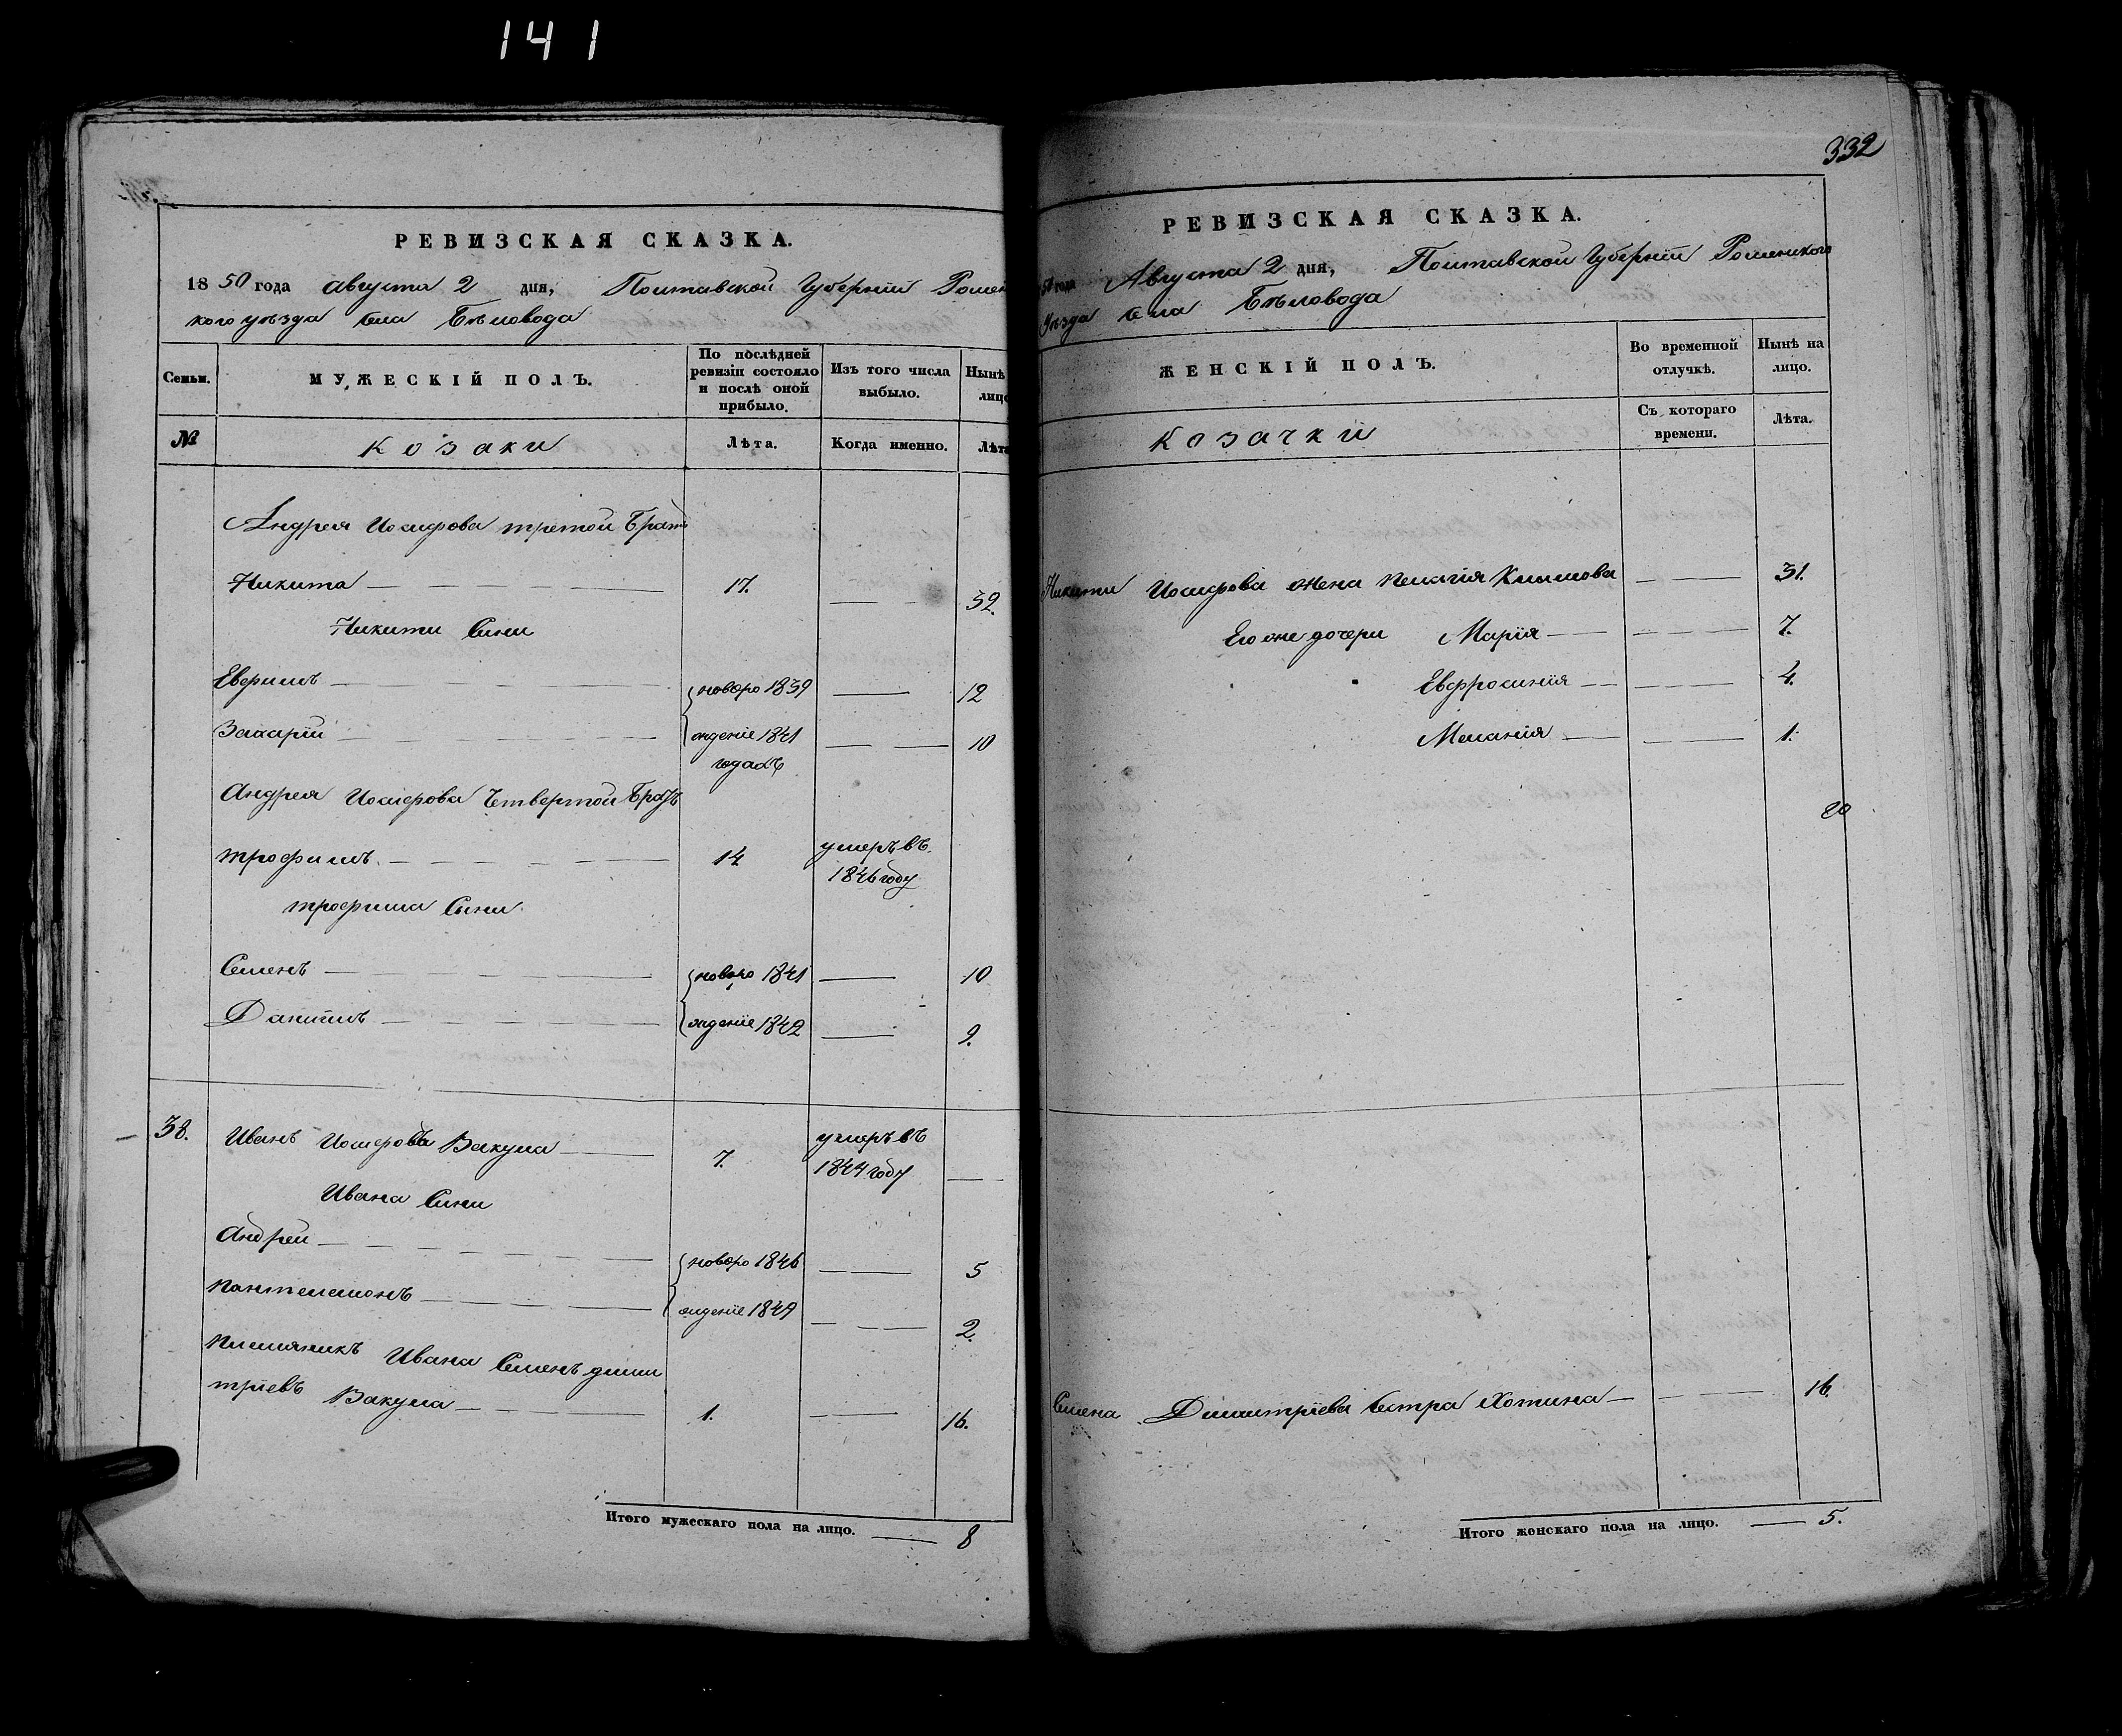 141
РЕВИЗСКАЯ СКАЗКА.
1850 года августа 2 дня, Полтавской Губернїи Ромен
кого уѣзда села Бѣловода
Семьи.
МУЖЕСКІЙ ПОЛЪ.
По послѣдней
ревизіи состояло
и послѣ оной
прибыло.
Изъ того числа
выбыло.
Нынѣ
лицо
№
Козаки
Лѣта.
Когда именно.
Лѣта
Андрея Иосифова третой Братъ
Никита 17. 32.
Никити Сини
Ефримъ новоро 1839 12
Захарїй ждение 1841 10
годахъ
Андрея Иосифова Четвертой Братъ
Трофимъ 14 умеръ въ
1846 году
Трофима Сыни
Семенъ новоро 1841 10
Данїилъ ждение 1842 9.
38. Иванъ Иосифовъ Вакула 7. умеръ въ
1844 году
Ивана Сини
Андрей новоро 1846 5
Пантелемонъ ждение 1849 2.
Племяникъ Ивана Семенъ Дими
трїевъ Вакула 1. 16.
Итого мужескаго пола на лицо. 8
332
РЕВИЗСКАЯ СКАЗКА.
50 года Августа 2 дня, Полтавской Губернїи Роменского
Уѣзда села Бѣловода
ЖЕНСКІЙ ПОЛЪ.
Во временной
отлучкѣ.
Нынѣ на
лицо.
Козачки
Съ котораго
времени.
Лѣта.
Никити Иосифова жена Пелагїя Климова 31.
Его же дочери Марїя 7.
Евфросинїя 4.
Меланїя 1.
20
Семена Димитрїева сестра Хотина 16.
Итого женскаго пола на лицо. 5.